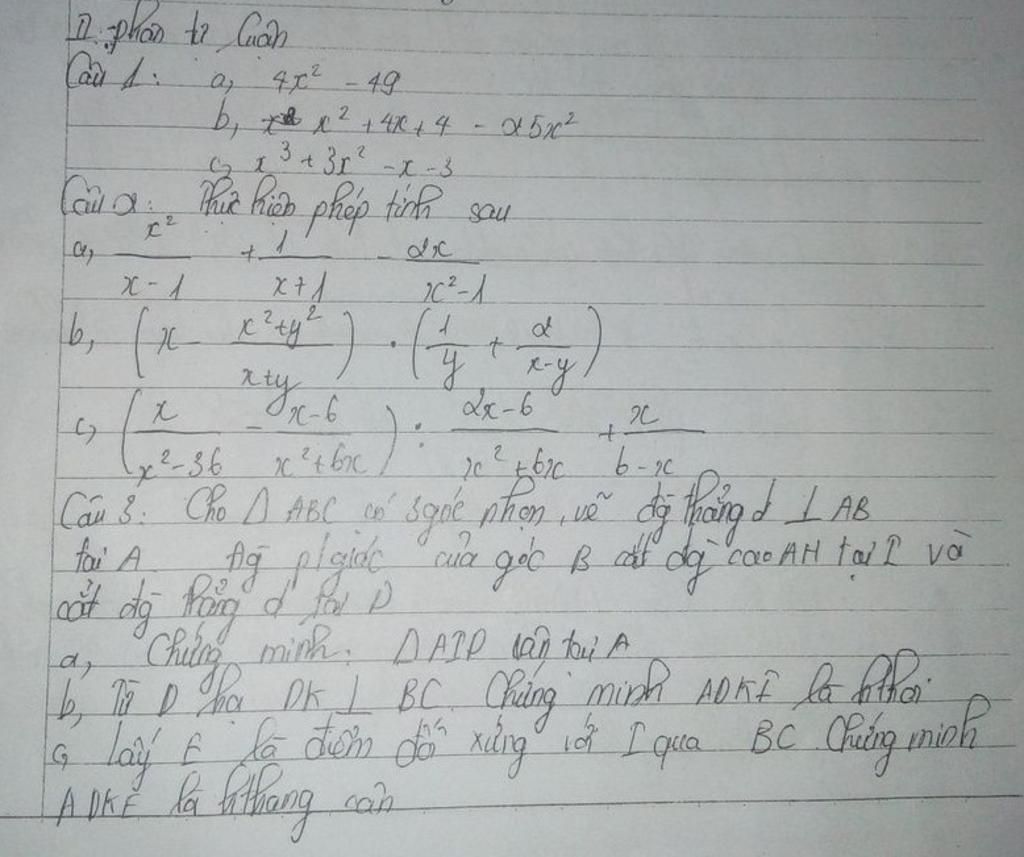 II. phần tự luận
Câu 1: a, 4x² - 49
b, x² + 4x + 4 - 25x²
c, x³ + 3x² - x - 3
Câu 2: Thực hiện phép tính sau
a, x²/(x - 1) + 1/(x + 1) - 2x/(x² - 1)
b, (x - (x² + y²)/(x + y)) . (1/y + 2/(x - y))
c, (x/(x² - 36) - (x - 6)/(x² + 6x)) : (2x - 6)/(x² + 6x) + x/(6 - x)
Câu 3: Cho Δ ABC có 3 góc nhọn, vẽ đg thẳng d ⊥ AB
tại A. Đg p/giác của góc B cắt đg cao AH tại I và
cắt đg thẳng d tại D
a, Chứng minh: Δ AID cân tại A
b, Từ D hạ DK ⊥ BC. Chứng minh ADKI là hthoi
c, lấy E là điểm đố xứng với I qua BC. Chứng minh
ADKE là hthang cân